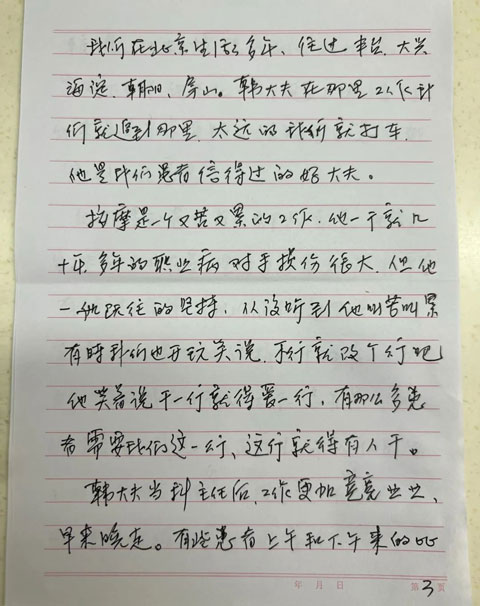 我们在北京生活多年、住过丰台、大兴
海淀、朝阳、房山。韩大夫在那里工作我
们就追到那里、太远的我们就打车、
他是我们患者信得过的好大夫。
按摩是一个又苦又累的工作、他一干就几
十年、多年的职业病对手损伤很大、但他
一如既往的坚持、从没听到他叫苦叫累
有时我们也开玩笑说、不行就改个行吧
他笑着说干一行就得爱一行、有那么多患
者需要我们这一行、这行就得有人干。
韩大夫当科主任后、工作更加兢兢业业、
早来晚走。有些患者上午和下午来的比
年 月 日 第3页